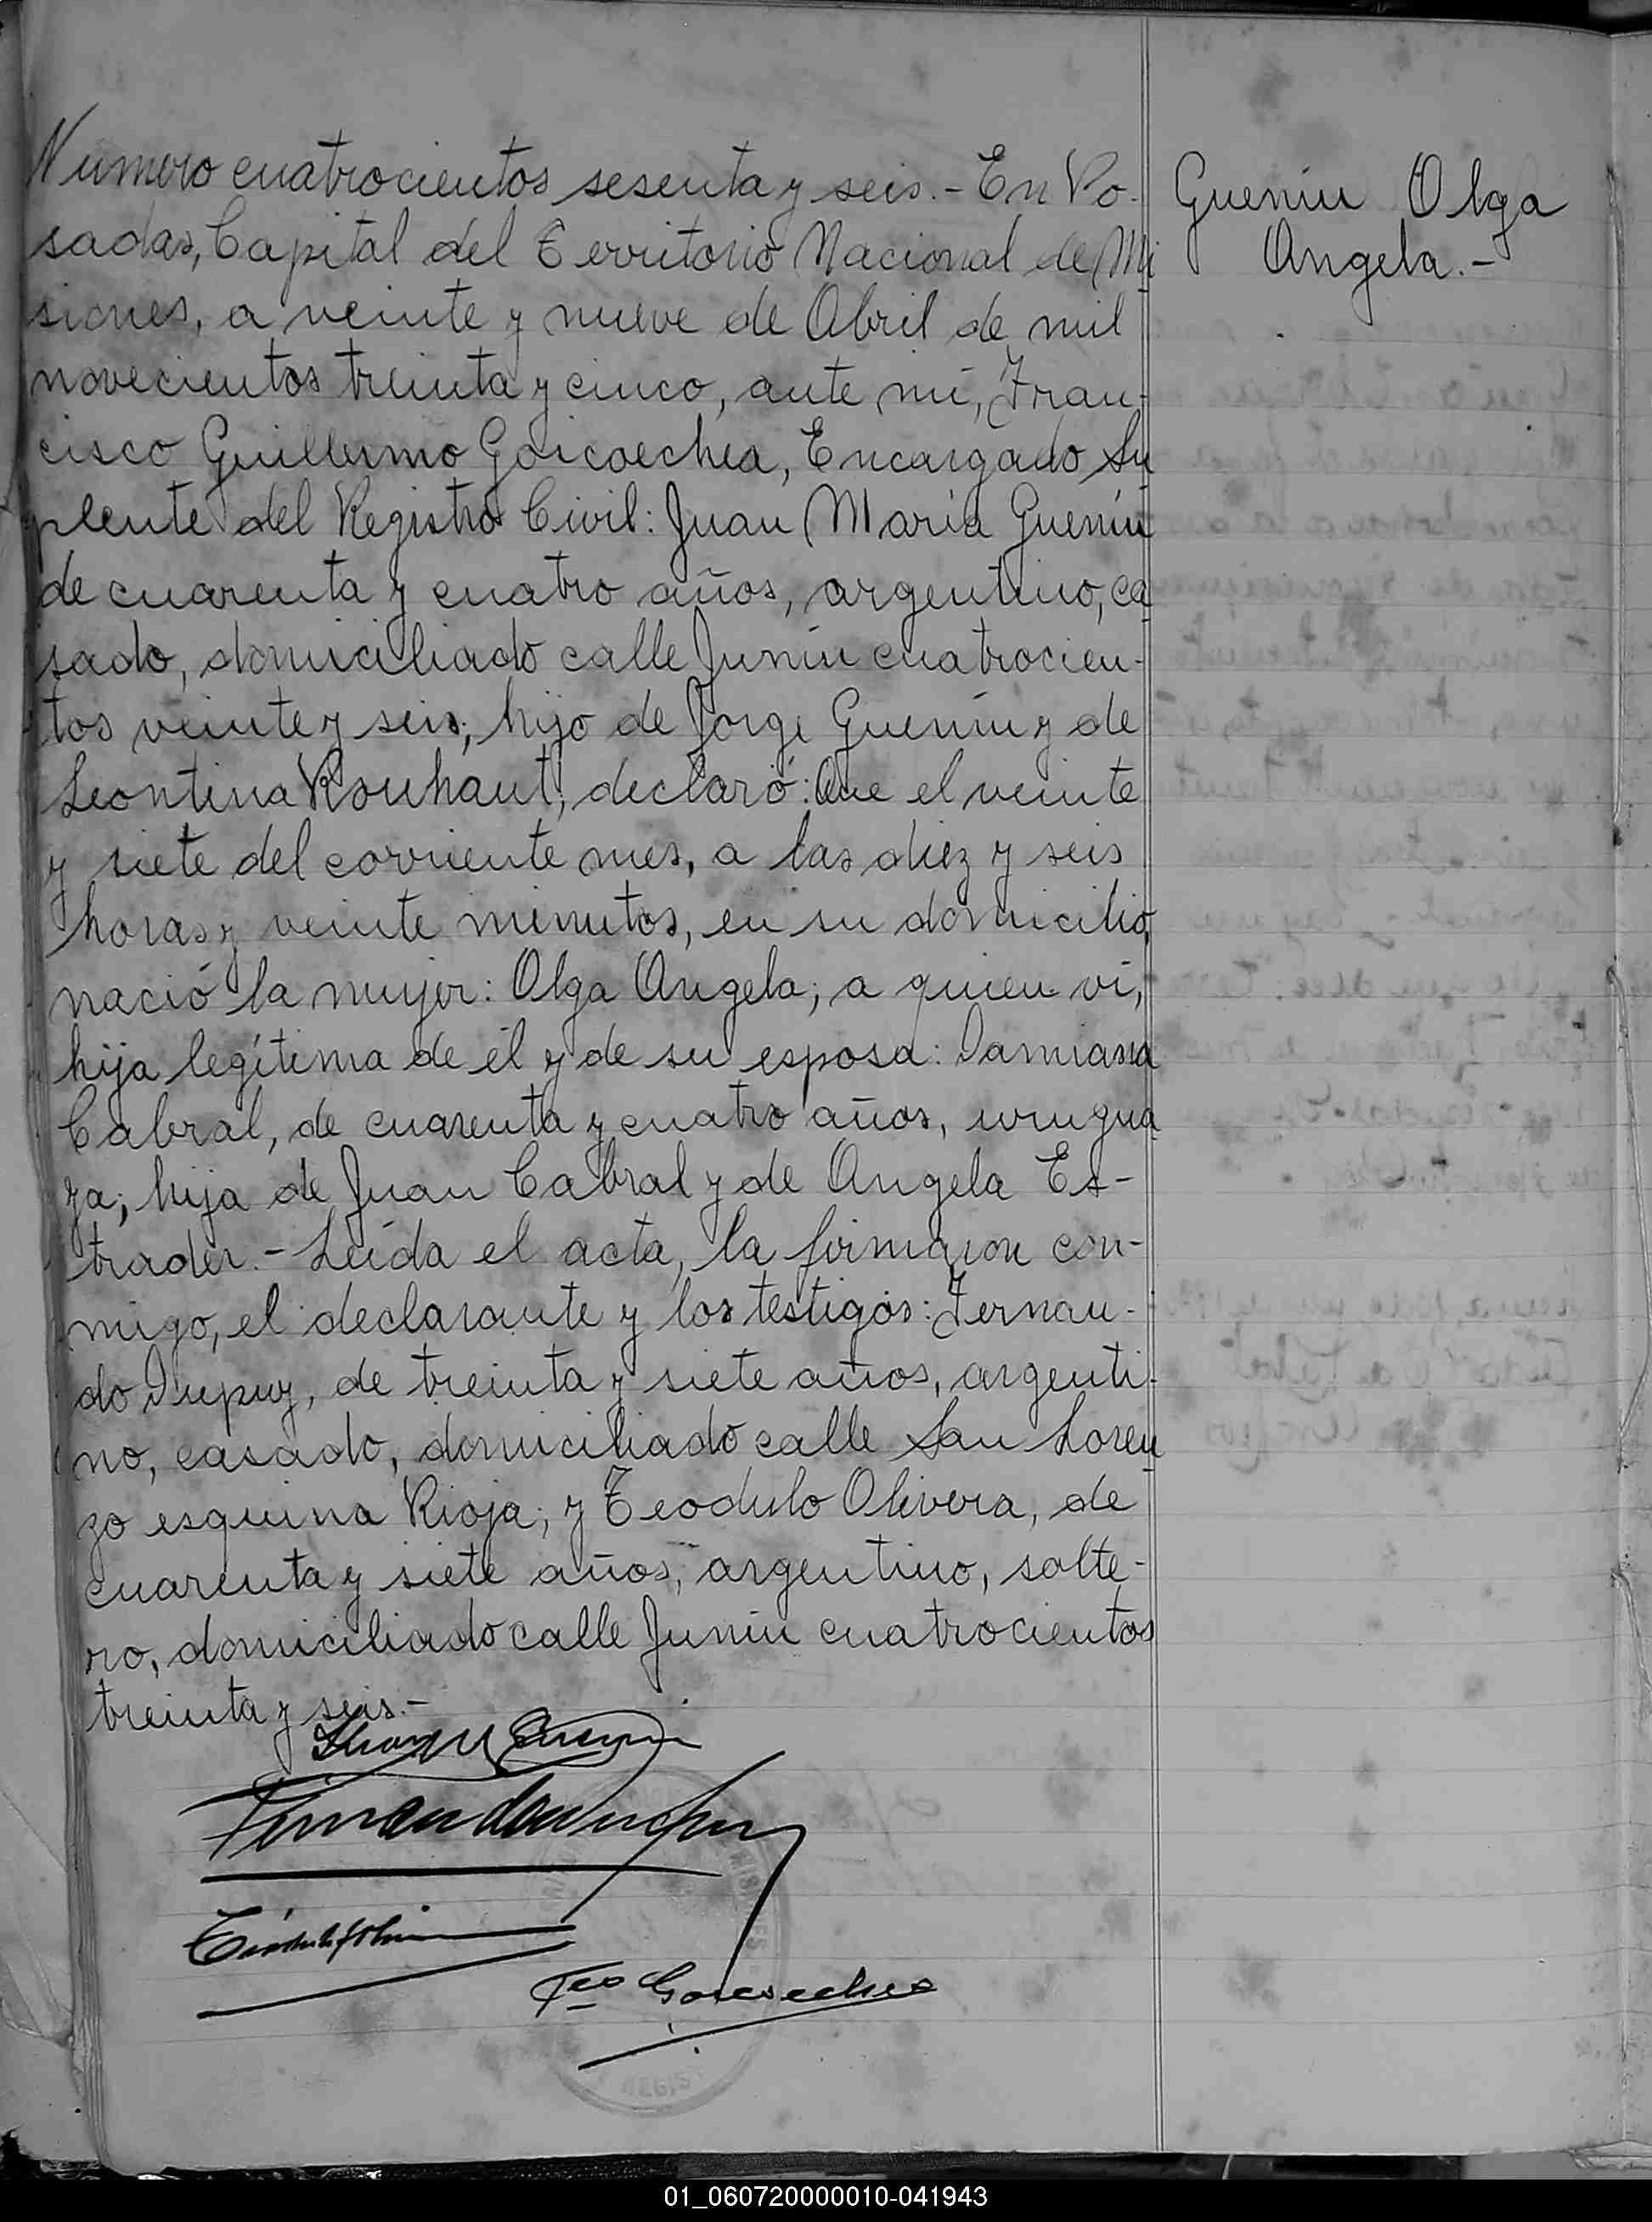 Numero cuatrocientos sesenta y seis.- En Po-
sadas, Capital del Territorio Nacional de Mi
siones, a veinte y nueve de Abril de mil
novecientos treinta y cinco, ante mí, Fran-
cisco Guillermo Goicoechea, Encargado Su
plente del Registro Civil: Juan María Guenin
de cuarenta y cuatro años, argentino, ca
sado, domiciliado calle Junín cuatrocien-
tos veinte y seis; hijo de Jorge Guenin y de
Leontina Rouhaut; declaró: Que el veinte
y siete del corriente mes, a las diez y seis
horas y veinte minutos, en su domicilio,
nació la mujer: Olga Angela; a quien ví,
hija legítima de él y de su esposa: Damiana
Cabral, de cuarenta y cuatro años, urugua
ya; hija de Juan Cabral y de Angela Es-
trader.- Leída el acta, la firmaron con-
migo, el declarante y los testigos: Fernan-
do Dupuy, de treinta y siete años, argenti-
no, casado, domiciliado calle San Loren
zo esquina Rioja; y Teodulo Olivera, de
cuarenta y siete años, argentino, solte-
ro, domiciliado calle Junín cuatrocientos
treinta y seis.-
Guenin Olga
Angela.-
Juan M Guenin
Fernando Dupuy
Fco Goicoechea
MISIONES
REGIS
01_060720000010-041943